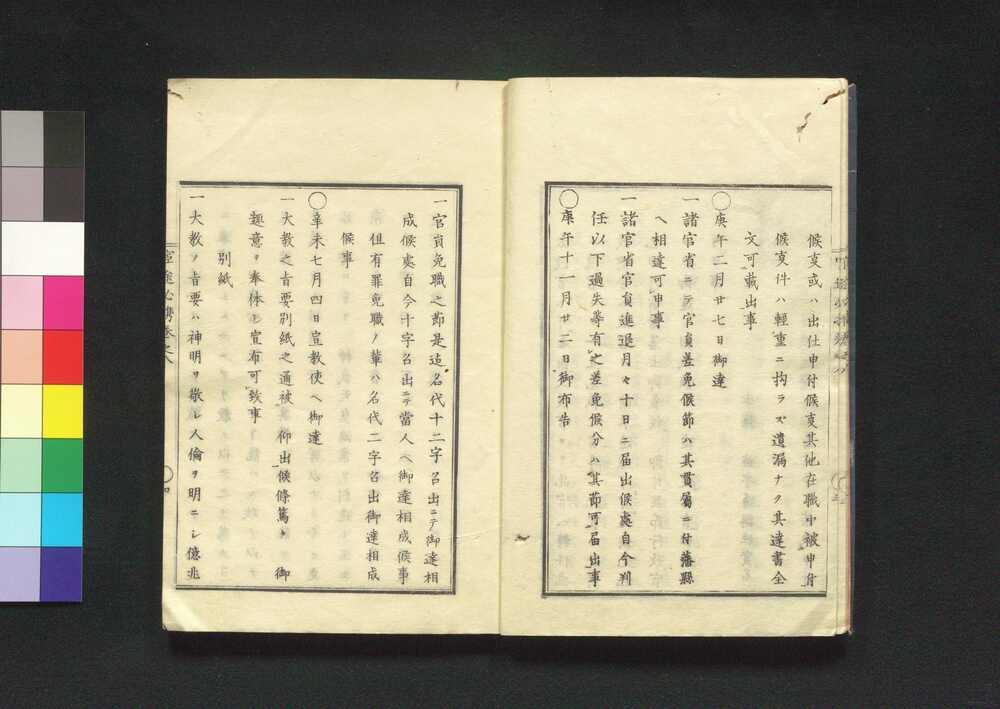 候叓或ハ出仕申付候叓其他在職中被申付
候叓件ハ輕重ニ拘ラズ遺漏ナク其達書全
文可載出事
○庚午二月廿七日御達
一諸官省ニテ官員差免候節ハ其貫屬ニ付藩縣
ヘ相達可申事
一諸官省官員進退月々十日ニ届出候處自今判
任以下過失等有之差免候分ハ其節可届出事
○庚午十一月廿二日御布告
一官員免職之節是迄名代十二字呂出ニテ御達相
成候處自今十字呂出ニテ當人ヘ御達相成候事
但有罪免職ノ輩ハ名代二字呂出御達相成
候事
○辛未七月四日宣教使ヘ御達
一大教之旨要別紙之通被 仰出候條篤ト 御
趣意ヲ奉体シ宣布可致事
別紙
一大教ノ旨要ハ神明ヲ敬シ人倫ヲ明ニシ億兆
必携卷之八
○四